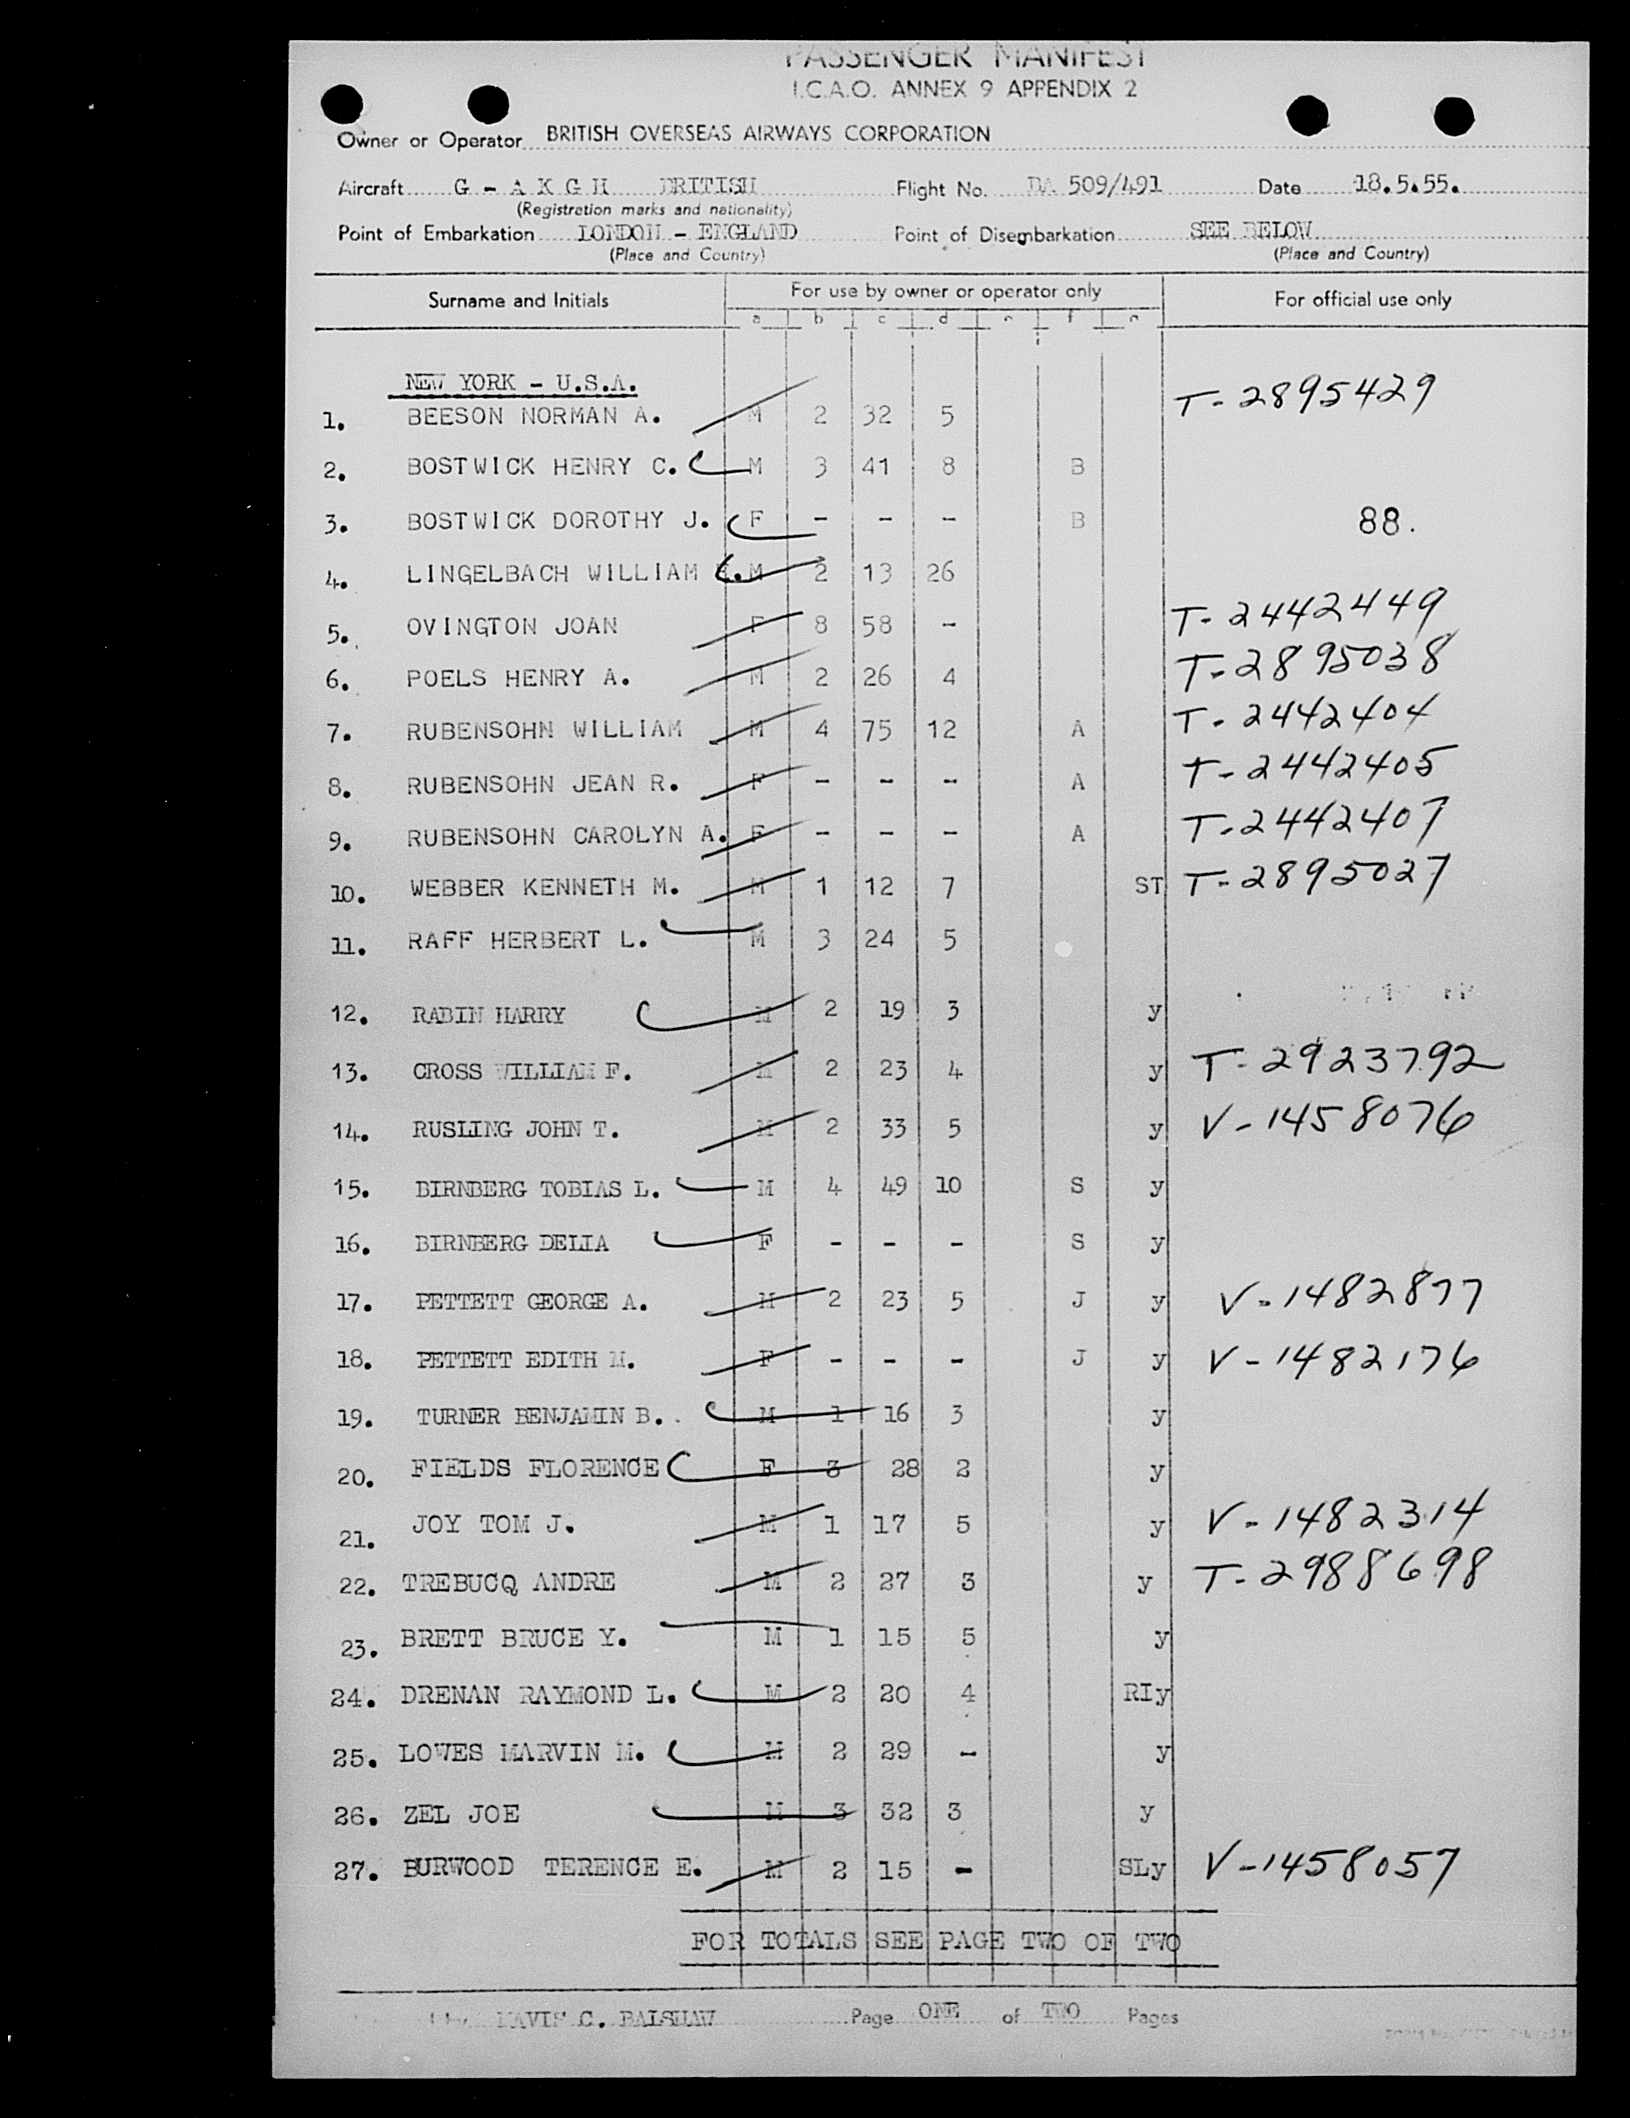 PASSENGER MANIFEST
I.C.A.O. ANNEX 9 APPENDIX 2
Owner or Operator BRITISH OVERSEAS AIRWAYS CORPORATION
Aircraft G - A K G H BRITISH Flight No. BA 509/491 Date 18.5.55.
(Registration marks and nationality)
Point of Embarkation LONDON - ENGLAND Point of Disembarkation SEE BELOW
(Place and Country) (Place and Country)
Surname and Initials For use by owner or operator only For official use only
a b c d e f g
NEW YORK - U.S.A.
1. BEESON NORMAN A. M 2 32 5 T-2895429
2. BOSTWICK HENRY C. M 3 41 8 B
3. BOSTWICK DOROTHY J. F - - - B 88.
4. LINGELBACH WILLIAM M 2 13 26
5. OVINGTON JOAN F 8 58 - T-2442449
6. POELS HENRY A. M 2 26 4 T-2895038
7. RUBENSOHN WILLIAM M 4 75 12 A T-2442404
8. RUBENSOHN JEAN R. F - - - A T-2442405
9. RUBENSOHN CAROLYN A. F - - - A T-2442407
10. WEBBER KENNETH M. M 1 12 7 ST T-2895027
11. RAFF HERBERT L. M 3 24 5
12. RABIN HARRY M 2 19 3 y
13. CROSS WILLIAM F. M 2 23 4 y T-2923792
14. RUSLING JOHN T. M 2 33 5 y V-1458076
15. BIRNBERG TOBIAS L. M 4 49 10 S y
16. BIRNBERG DELIA F - - - S y
17. PETTETT GEORGE A. M 2 23 5 J y V-1482877
18. PETTETT EDITH M. F - - - J y V-1482176
19. TURNER BENJAMIN B. M 1 16 3 y
20. FIELDS FLORENCE F 3 28 2 y
21. JOY TOM J. M 1 17 5 y V-1482314
22. TREBUCQ ANDRE M 2 27 3 y T-2988698
23. BRETT BRUCE Y. M 1 15 5 y
24. DRENAN RAYMOND L. M 2 20 4 RIy
25. LOWES MARVIN M. M 2 29 - y
26. ZEL JOE M 3 32 3 y
27. BURWOOD TERENCE E. M 2 15 - SLy V-1458057
FOR TOTALS SEE PAGE TWO OF TWO
MAVIS C. BALSHAW Page ONE of TWO Pages